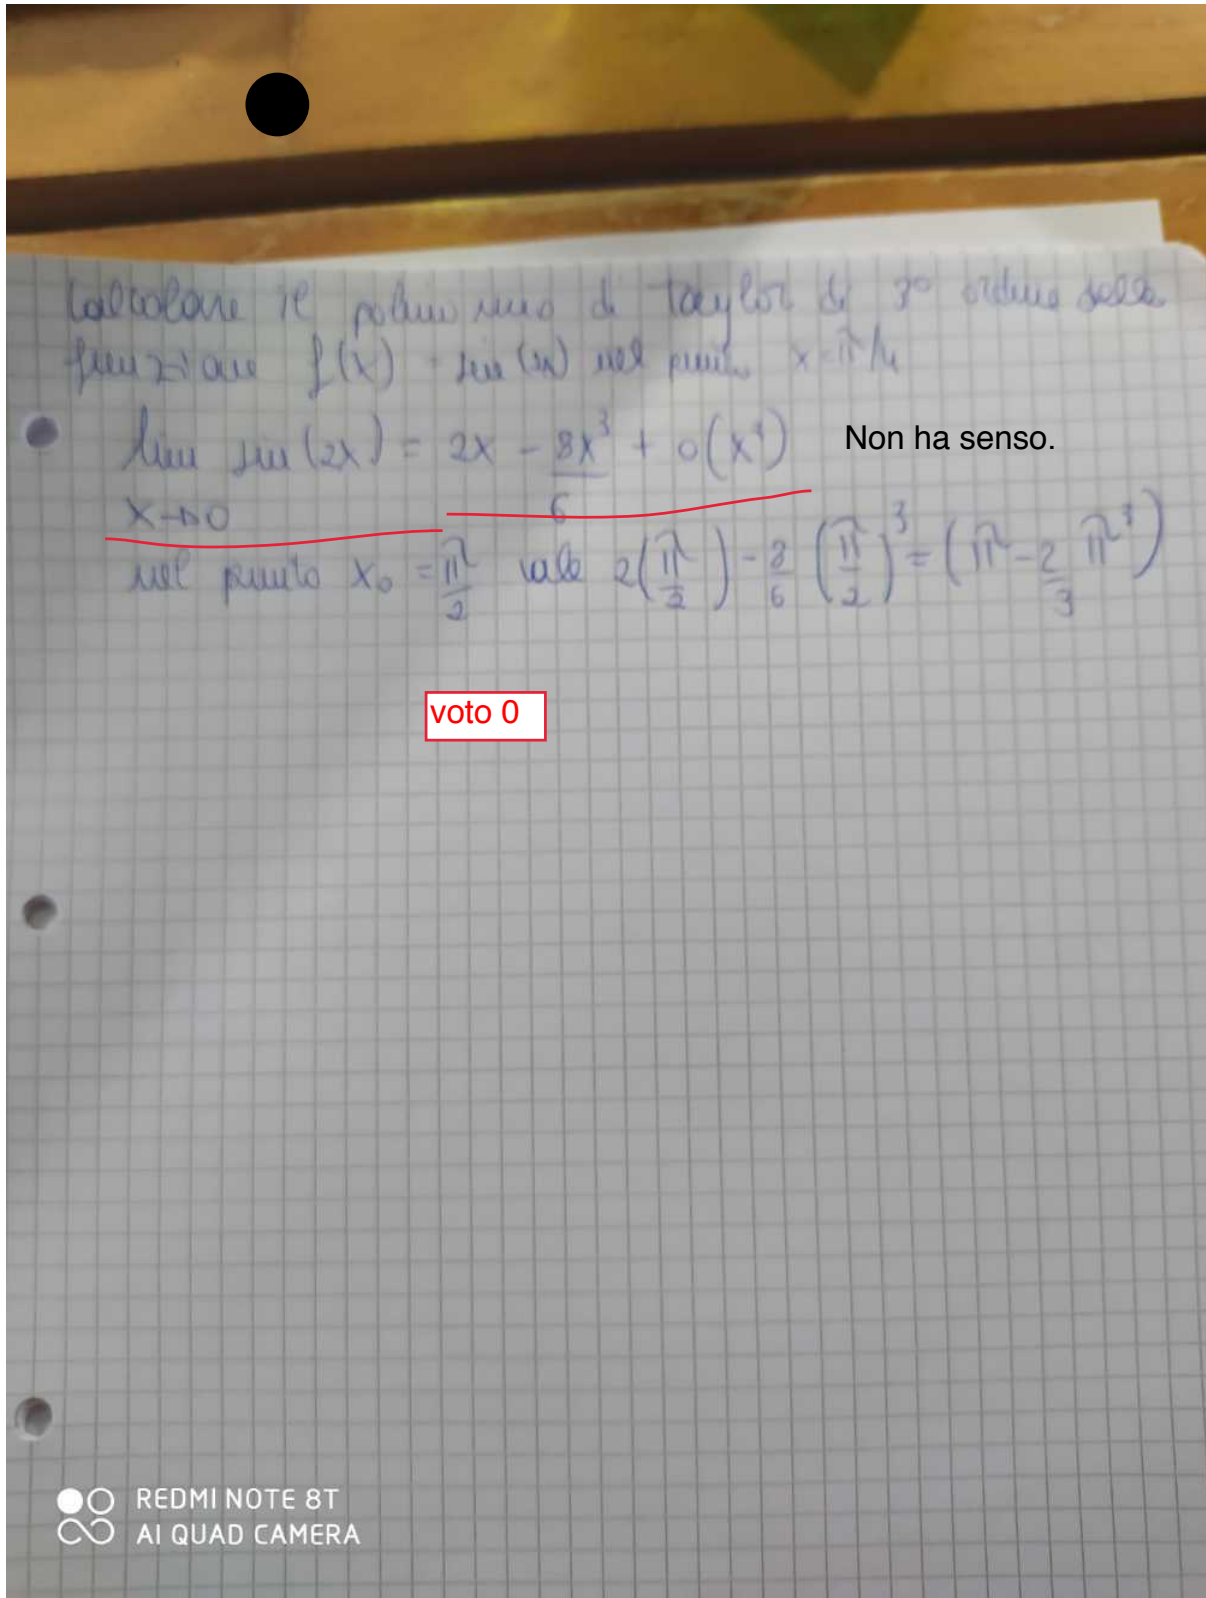 Calcolare il polinomio di Taylor di 3° ordine della
funzione f(x) = sin(2x) nel punto x = π/4
lim sin(2x) = 2x - 8x³/6 + o(x⁴) Non ha senso.
x→0
nel punto x₀ = π/2 vale 2(π/2) - 8/6 (π/2)³ = (π - 2/3 π³)
voto 0
REDMI NOTE 8T
AI QUAD CAMERA